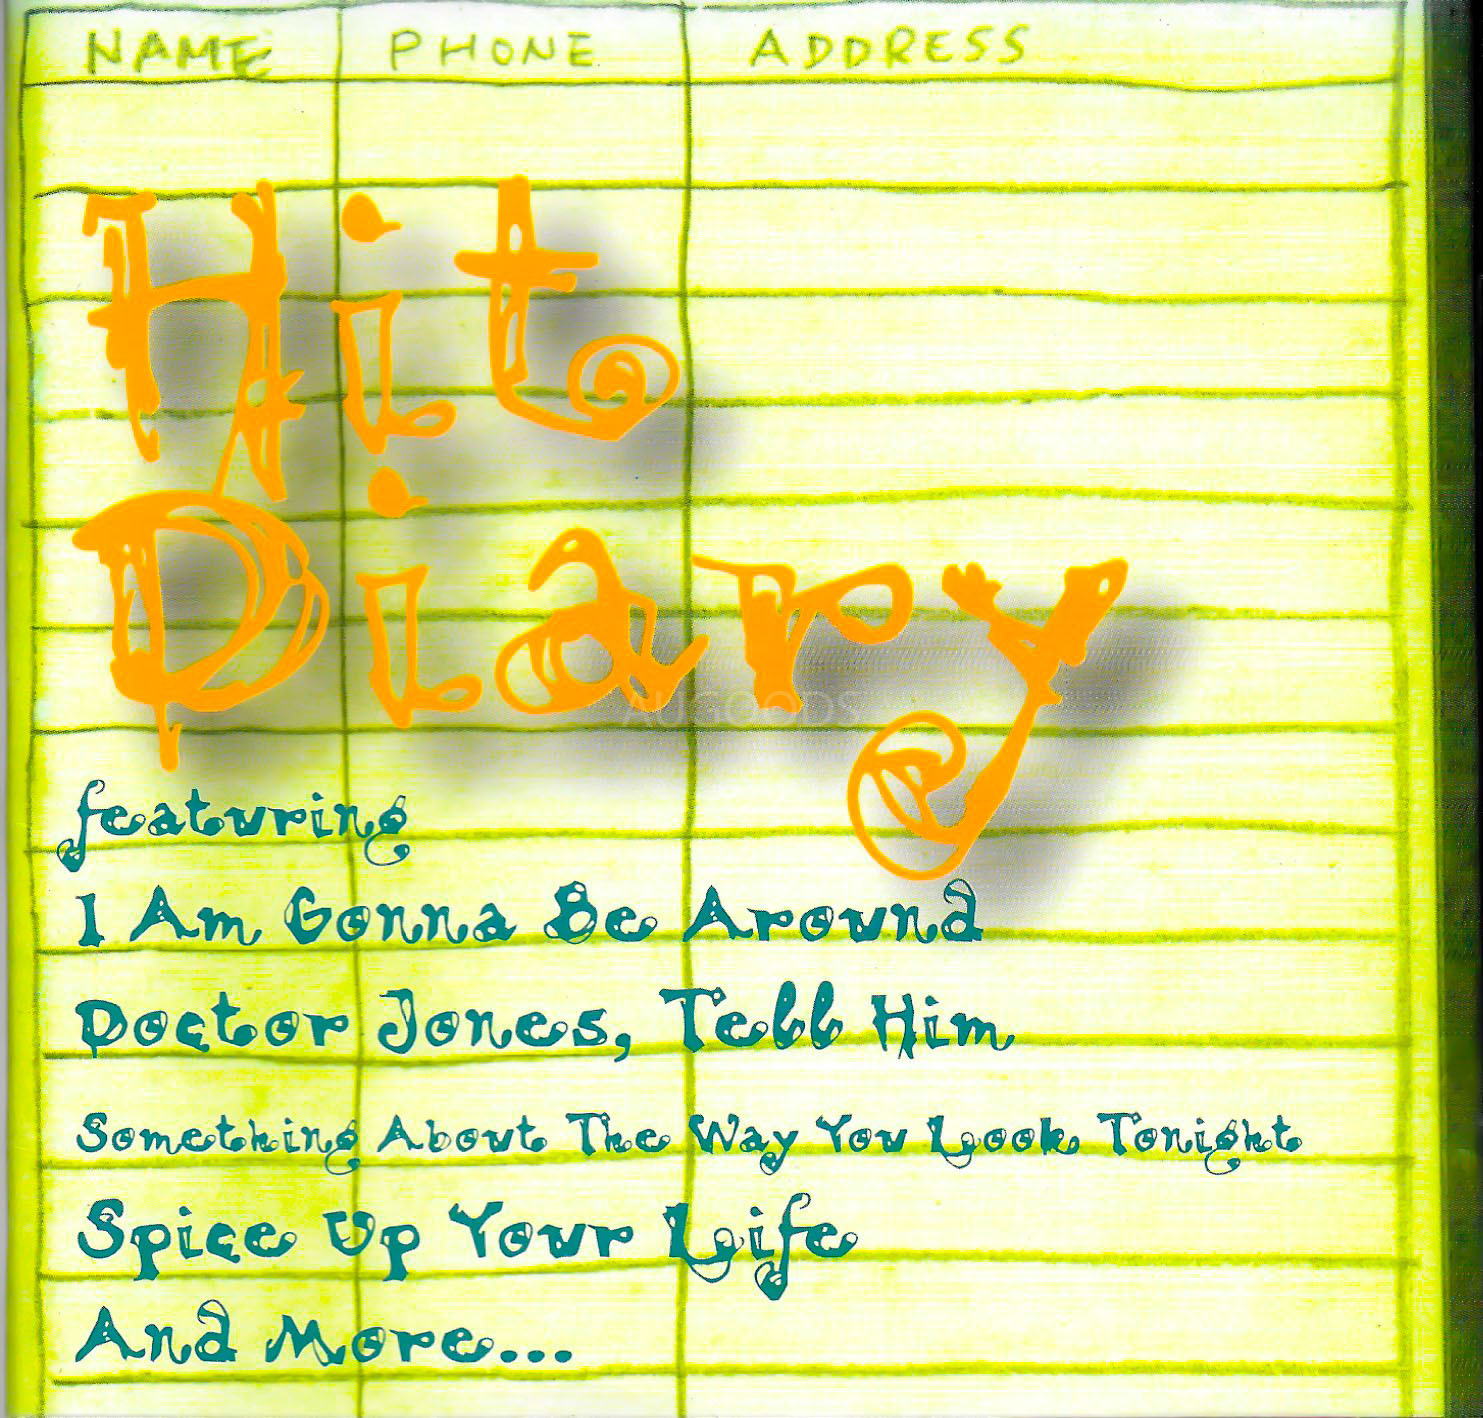 NAME PHONE ADDRESS
Hit
Diary
AUGOODS
featuring
I Am Gonna Be Around
Doctor Jones, Tell Him
Something About The Way You Look Tonight
Spice Up Your Life
And More...